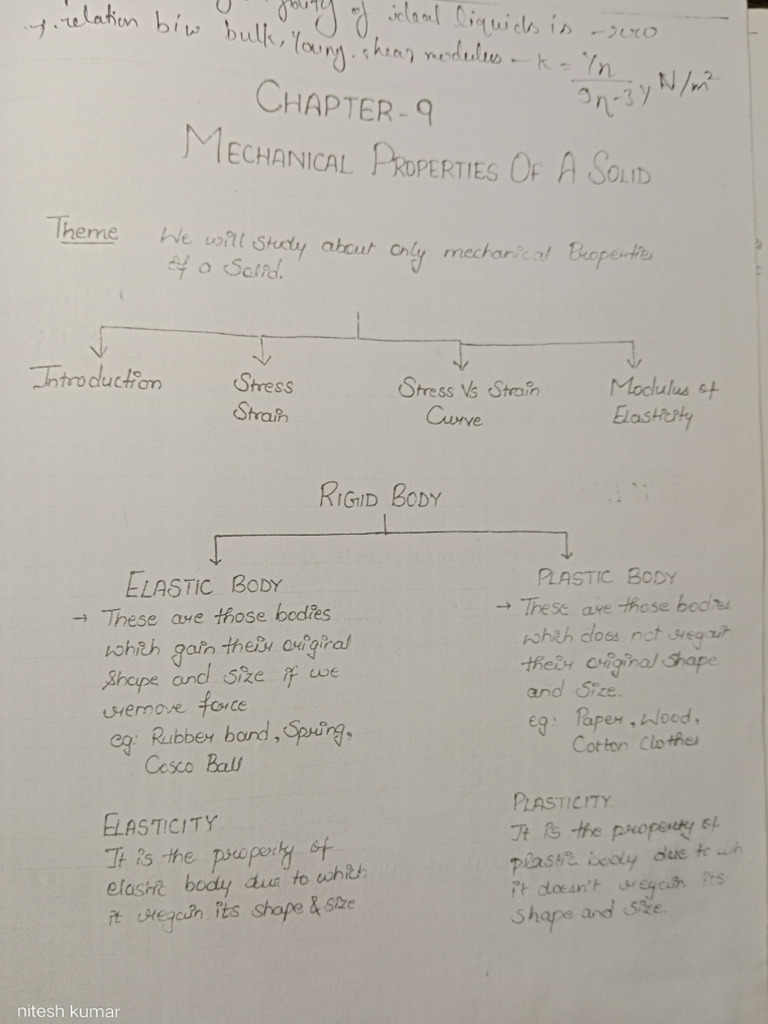 of ideal liquids is - zero
→ relation b/w bulk, Young, shear modulus - K = Yη / 9η-3Y N/m²
CHAPTER-9
MECHANICAL PROPERTIES OF A SOLID
Theme We will study about only mechanical Properties
of a Solid.
Introduction Stress Strain Stress Vs Strain Curve Modulus of Elasticity
RIGID BODY
ELASTIC BODY
→ These are those bodies
which gain their original
shape and size if we
remove force
eg: Rubber band, Spring,
Cosco Ball
ELASTICITY
It is the property of
elastic body due to which
it regain its shape & size
PLASTIC BODY
→ These are those bodies
which does not regain
their original shape
and size.
eg: Paper, Wood,
Cotton Clothes
PLASTICITY
It is the property of
plastic body due to wh
it doesn't regain its
shape and size.
nitesh kumar